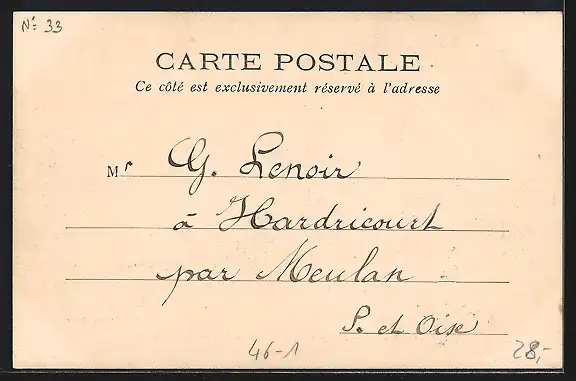 Nº 33
CARTE POSTALE
Ce côté est exclusivement réservé à l'adresse
Mr G. Lenoir
à Hardricourt
par Meulan
S. et Oise
46-1
28,-